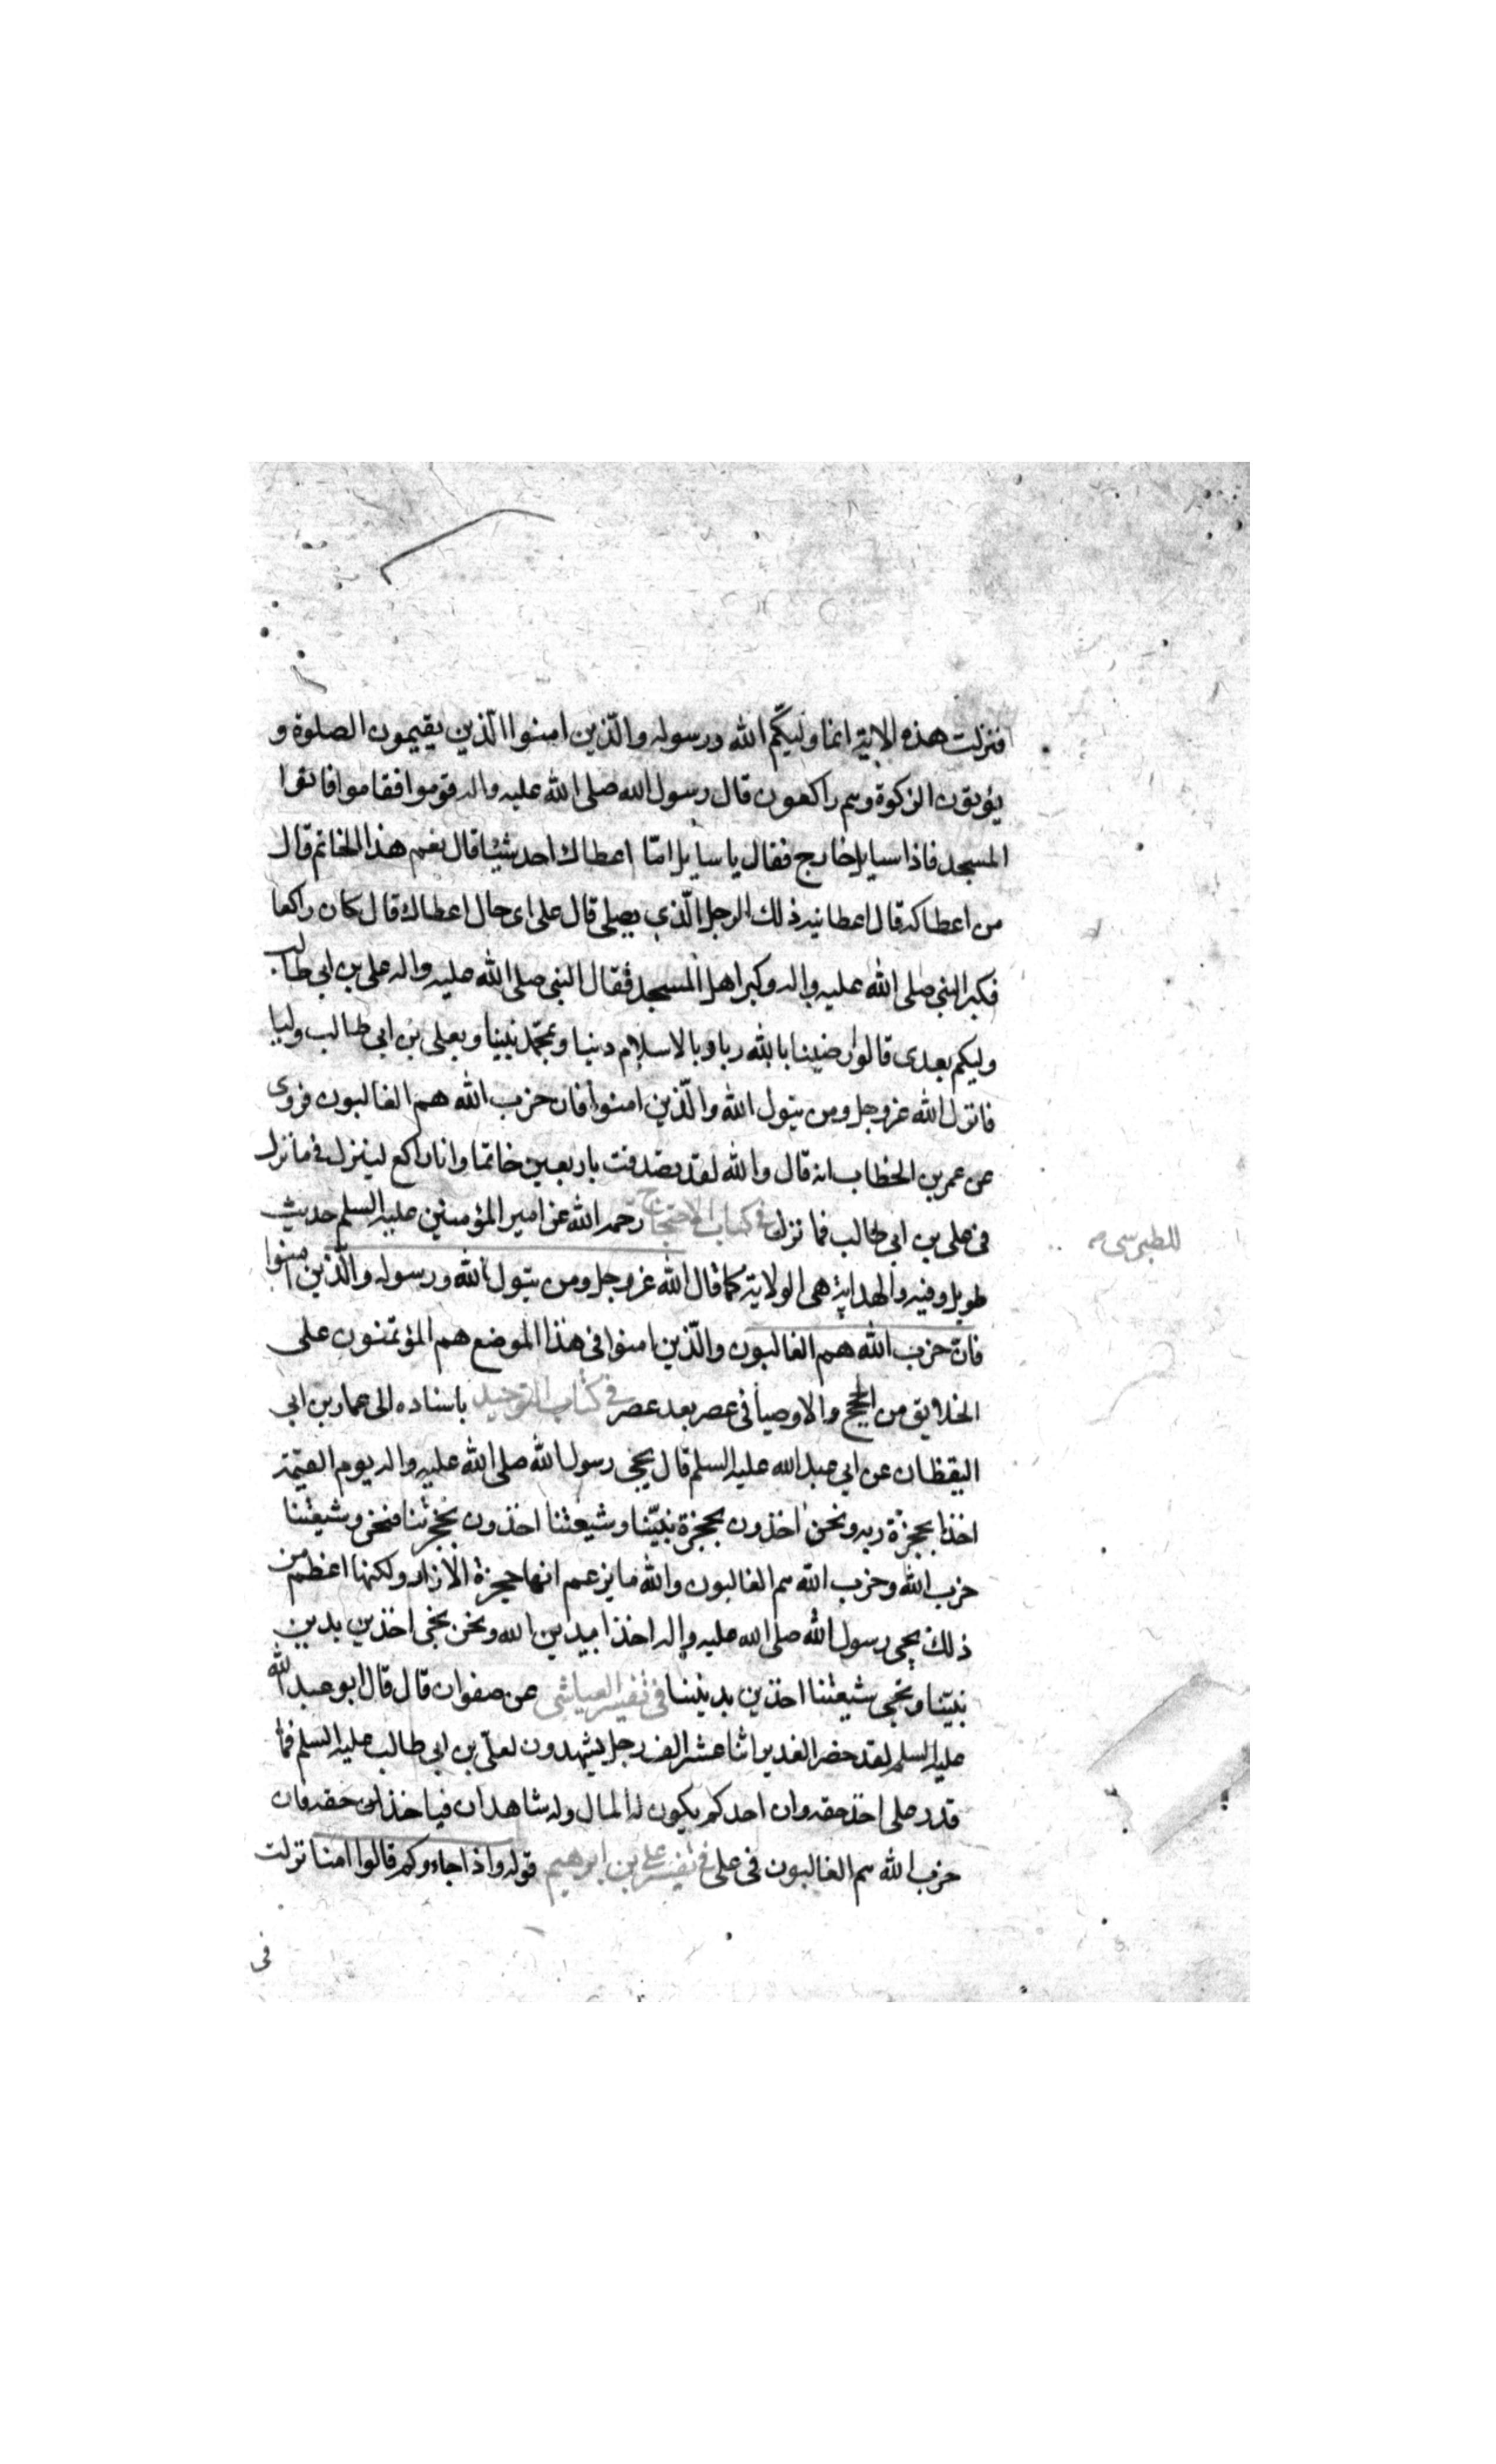 فنزلت هذه الاية انما وليكم الله ورسوله والّذين امنوا الّذين يقيمون الصلوة و
يؤتون الزكوة وهم راكعون قال رسول الله صلى الله عليه واله قوموا فقاموا فاتوا
المسجد فاذا سايل خارج فقال يا سايل امّا اعطاك احد شيئا قال نعم هذا الخاتم قال
من اعطاكه قال اعطانيه ذلك الرجل الّذي يصلى قال على اى حال اعطاك قال كان راكعا
فكبر النبي صلى الله عليه واله وكبر اهل المسجد فقال النبي صلى الله عليه واله على بن ابى طالب
وليكم بعدى قالوا رضينا بالله ربا وبالاسلام دينا وبمحمّد نبينا وبعلى بن ابى طالب وليا
فانزل الله عزوجل ومن يتول الله والّذين امنوا فان حزب الله هم الغالبون فروى
عن عمر بن الخطاب انه قال والله لقد تصدقت باربعين خاتما وانا راكع لينزل فى ما نزل
فى على بن ابى طالب فما نزل فى كتاب الاحتجاج رحمه الله عن امير المؤمنين عليه السلم حديث
للطبرسى
طويل وفيه والهداية هى الولاية كما قال الله عزوجل ومن يتول الله ورسوله والّذين امنوا
فانّ حزب الله هم الغالبون والّذين امنوا فى هذا الموضع هم المؤتمنون على
الخلايق من الحجج والاوصيا فى عصر بعد عصر فى كتاب التوحيد باسناده الى عمار بن ابى
اليقظان عن ابى عبد الله عليه السلم قال يجئ رسول الله صلى الله عليه واله يوم القيمة
اخذا بحجزة ربه ونحن اخذون بحجزة نبيّنا وشيعتنا اخذون بحجزتنا فنحن وشيعتنا
حزب الله وحزب الله هم الغالبون والله ما يزعم انها حجزة الازار ولكنها اعظم من
ذلك يجى رسول الله صلى الله عليه واله اخذا بدين الله ونحن نجى اخذين بدين
نبيّنا وتجى شيعتنا اخذين بديننا فى تفسير العياشى عن صفوان قال قال ابو عبد الله
عليه السلم لقد حضر الغدير اثنا عشر الف رجل يشهدون لعلىّ بن ابى طالب عليه السلم فما
قدر على اخذ حقه وان احدكم يكون له المال وله شاهدان فياخذ حقه فان
حزب الله هم الغالبون فى على فى تفسير على بن ابرهيم قوله واذا جاءوكم قالوا امنا نزلت
فى